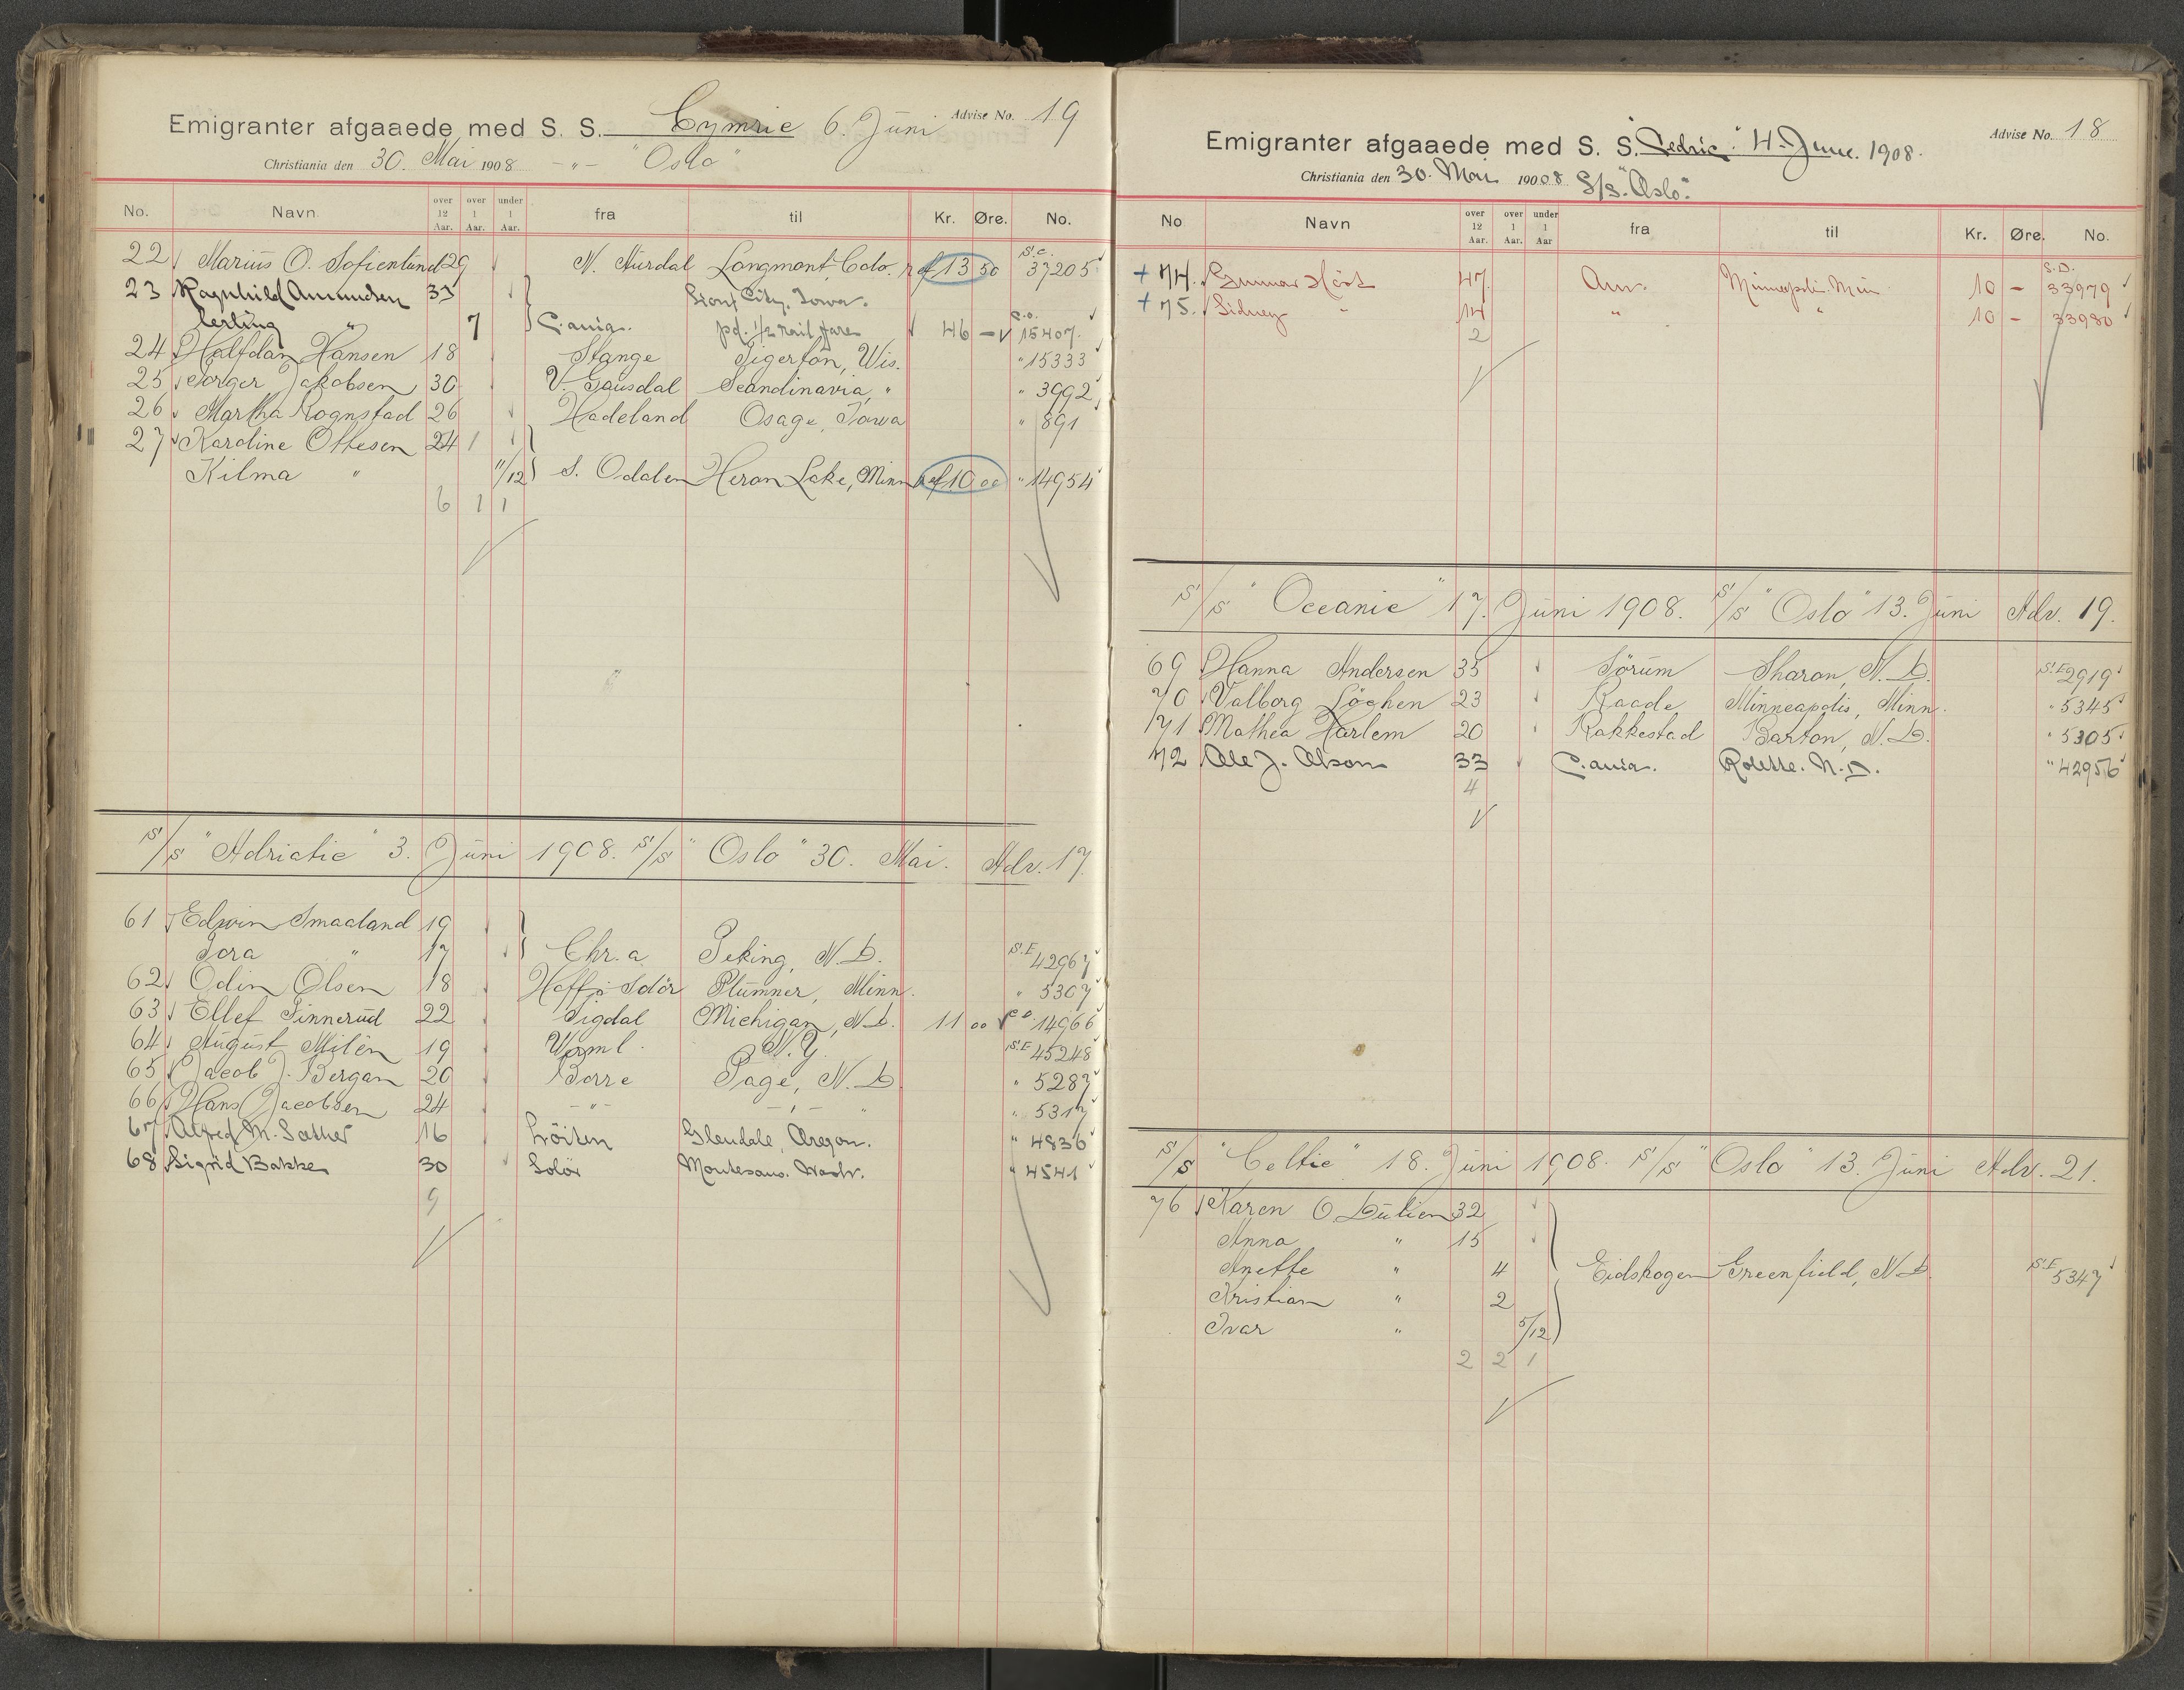 Emigranter afgaaede med S. S. Cymric 6. Juni Advise No. 19
Christiania den 30. Mai 1908 -"- "Oslo"
No. Navn over 12 Aar. over 1 Aar. under 1 Aar. fra til Kr. Øre. No.
22 Marius O. Sofienlund 29 N. Aurdal Longmont, Colo. ref 13 50 S.C. 37205
23 Ragnhild Amundsen 33 Sioux City. Iowa.
Erling " 7 C.ania. pd. 1/2 rail fare 46 - C.O. 15407.
24 Halfdan Hansen 18 Stange Tigerton, Wis. " 15333
25 Torger Jakobsen 30 V. Gausdal Scandinavia, " " 3992
26 Martha Rognstad 26 Hadeland Osage, Iowa " 891
27 Karoline Ottesen 24 1
Kilma " 11/12 S. Odalen Heron Lake, Minn ref 10 00 " 14954
6 1 1
S/S "Adriatic" 3. Juni 1908. S/S "Oslo" 30. Mai. Adv. 17.
61 Edwin Smaaland 19
Tora " 17 Chr.a Peking, N.D. S.E 42967
62 Odin Olsen 18 Haffjs Sdör Plummer, Minn. " 5307
63 Ellef Finnerud 22 Sigdal Michigan, N.D. 11 00 C.O. 14966
64 August Milén 19 Verml. N.Y. S.E 45248
65 Jacob J. Bergan 20 Borre Page, N.D. " 5287
66 Hans Jacobsen 24 -"- -"- " " 5317
67 Alfred M. Sæther 16 Löiten Glendale, Oregon. " 4836
68 Sigrid Bakke 30 Solör Montesano. Wash. " 4541
9
Emigranter afgaaede med S. S. "Cedric" 4. June. 1908. Advise No. 18
Christiania den 30. Mai 1908 S/S. "Oslo."
No Navn over 12 Aar. over 1 Aar. under 1 Aar fra til Kr. Øre. No.
+ 74. Gunnar Höst 47 Am. Minneapolis. Min 10 - S.D. 33979
+ 75. Sidney " 14 " " 10 - 33980
2
S/S "Oceanic" 17. Juni 1908. S/S "Oslo" 13. Juni Adv. 19.
69 Hanna Andersen 35 Sörum Sharon, N.D. S.E 2919
70 Valborg Löchen 23 Raade Minneapolis, Minn. " 5345
71 Mathea Harlem 20 Rakkestad Barton, N.D. " 5305
72 Ole J. Olson 33 C.ania. Rolette. N.D. " 42956
4
S/S "Celtic" 18. Juni 1908. S/S "Oslo" 13. Juni Adv. 21.
76 Karen O. Dulien 32
Anna " 15
Anette " 4 Eidskogen Greenfield, N.D. S.E 5347
Kristian " 2
Ivar " 5/12
2 2 1